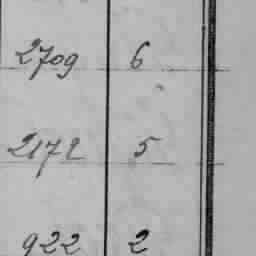 2709 6
2172 5
922 2